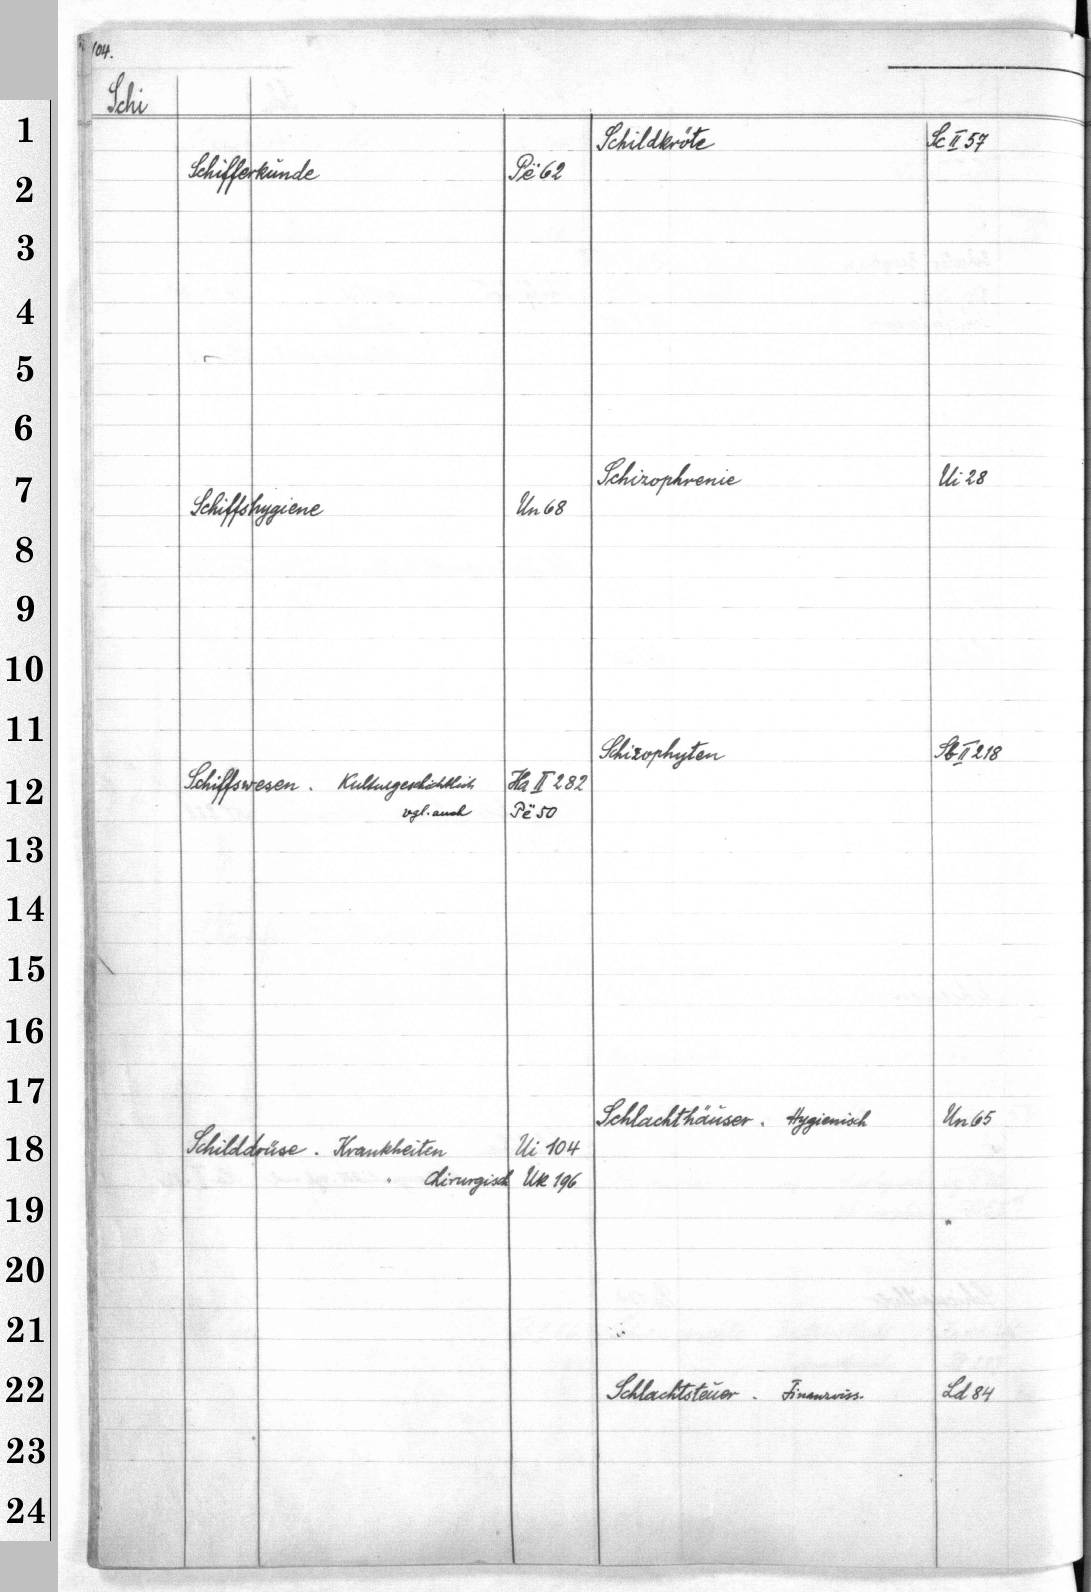 104.
Schi
1
2
3
4
5
6
7
8
9
10
11
12
13
14
15
16
17
18
19
20
21
22
23
24
Schifferkunde Pë 62
Schiffshygiene Un 68
Schiffswesen . Kulturgeschichtlich Ha II 282
vgl. auch Pë 50
Schilddrüse . Krankheiten Ui 104
" Chirurgisch Uk 196
Schildkröte Sc II 57
Schizophrenie Ui 28
Schizophyten Sb II 218
Schlachthäuser . Hygienisch Un 65
Schlachtsteuer . Finanzwiss. Ld 84